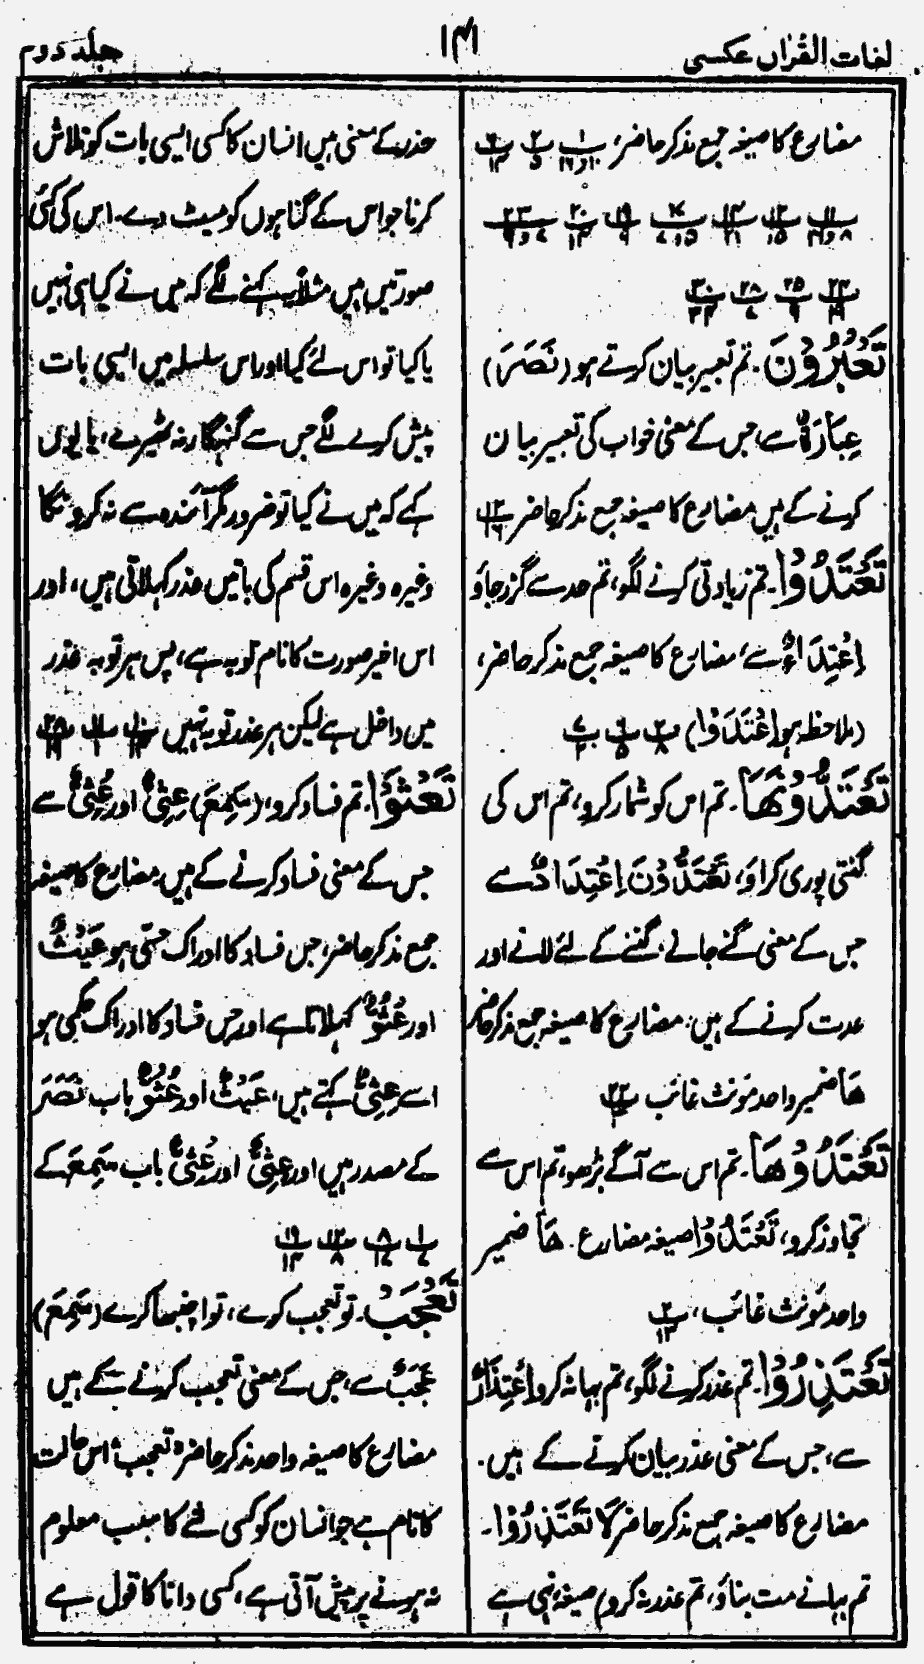 لغات القرآن عکسی
۱۳۱
جلد دوم
مضارع کا صیغہ جمع مذکر حاضر،
تَعْبُرُوْنَ۔ تم تعبیر بیان کرتے ہو (نَصَرَ)
عِبَارَۃٌ سے، جس کے معنی خواب کی تعبیر بیان
کرنے کے ہیں مضارع کا صیغہ جمع مذکر حاضر
تَعْتَدُوْا۔ تم زیادتی کرنے لگو، تم حد سے گزر جاؤ
اِعْتِدَاءٌ سے، مضارع کا صیغہ جمع مذکر حاضر،
(ملاحظہ ہو اِعْتَدَوْا)
تَعْتَدُّوْنَھَا۔ تم اس کو شمار کرو، تم اس کی
گنتی پوری کراؤ، تَعْتَدُّوْنَ اِعْتِدَادٌ سے
جس کے معنی گنے جانے، گننے کے لئے لانے اور
عدت کرنے کے ہیں۔ مضارع کا صیغہ جمع مذکر حاضر
ھَا ضمیر واحد مونث غائب
تَعْتَدُوْھَا۔ تم اس سے آگے بڑھو، تم اس سے
تجاوز کرو، تَعْتَدُوْا صیغہ مضارع۔ ھَا ضمیر
واحد مونث غائب،
تَعْتَذِرُوْا۔ تم عذر کرنے لگو، تم بہانہ کرو اِعْتِذَارٌ
سے، جس کے معنی عذر بیان کرتے کے ہیں۔
مضارع کا صیغہ جمع مذکر حاضر لَا تَعْتَذِرُوْا۔
تم بہانے مت بناؤ، تم عذر نہ کرو، صیغہ نہی ہے
عذر کے معنی ہیں انسان کا کسی ایسی بات کو تلاش
کرنا جو اس کے گناہوں کو میٹ دے۔ اس کی کئی
صورتیں ہیں مثلاً یہ کہنے لگے کہ میں نے کیا ہی نہیں
یا کیا تو اس لئے کیا اور اس سلسلہ میں ایسی بات
پیش کرنے لگے جس سے گنہگار نہ ٹھیرے، یا یوں
کہے کہ میں نے کیا تو ضرور مگر آئندہ سے نہ کرونگا
وغیرہ وغیرہ اس قسم کی باتیں عذر کہلاتی ہیں، اور
اس اخیر صورت کا نام توبہ ہے، پس ہر توبہ عذر
میں داخل ہے لیکن ہر عذر توبہ نہیں
تَعْثَوْا۔ تم فساد کرو، (سَمِعَ) عِثِیٌّ اور عُثِیٌّ سے
جس کے معنی فساد کرنے کے ہیں، مضارع کا صیغہ
جمع مذکر حاضر، جس فساد کا ادراک حسّی ہو عَیْثٌ
اور عُثُوٌّ کہلاتا ہے اور جس فساد کا ادراک حکمی ہو
اسے عِثِیٌّ کہتے ہیں، عَیْثٌ اور عُثُوٌّ باب نَصَرَ
کے مصدر ہیں اور عِثِیٌّ اور عُثِیٌّ باب سَمِعَ کے
تَعْجَبْ۔ تو تعجب کرے، تو اچنبھا کرے (سَمِعَ)
عَجَبٌ سے، جس کے معنی تعجب کرنے کے ہیں
مضارع کا صیغہ واحد مذکر حاضر، تعجب اس حالت
کا نام ہے جو انسان کو کسی شے کا سبب معلوم
نہ ہونے پر پیش آتی ہے، کسی دانا کا قول ہے